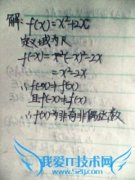 解: f(x)=x²+2x
定义域为R
f(-x)=x²-2x
=x²-2x
∴f(-x)≠f(x)
且f(-x)≠-f(x)
∴f(x)为非奇非偶函数
我爱IT技术网